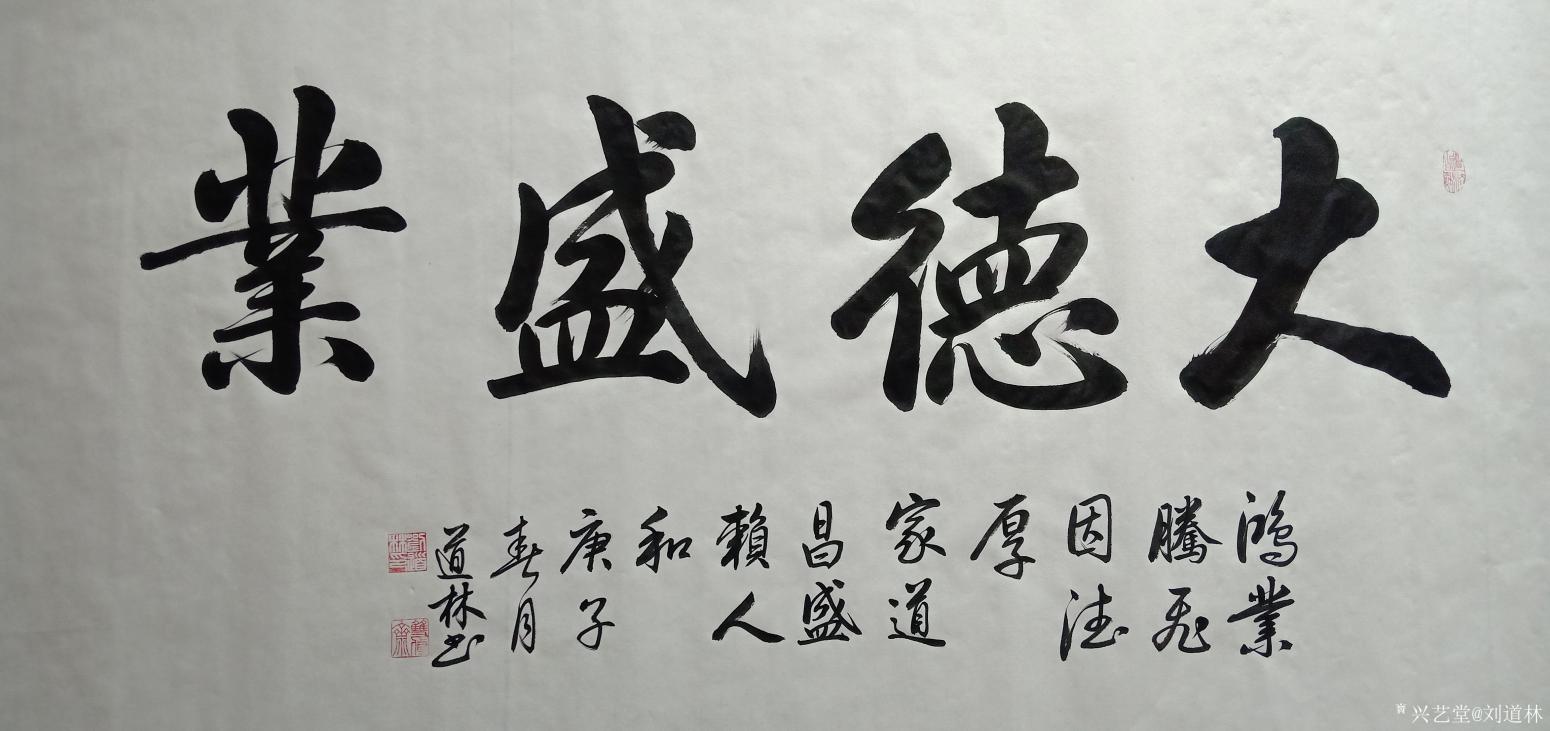 大德盛業
鴻業
騰飛
因德
厚
家道
昌盛
賴人
和
庚子
春月
道林书
兴艺堂@刘道林